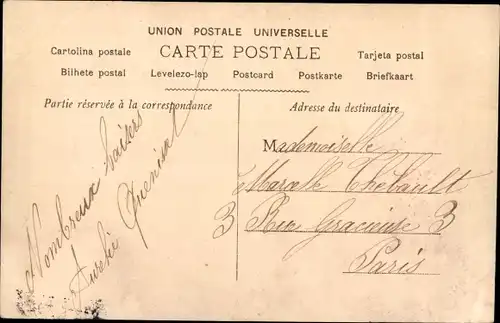 UNION POSTALE UNIVERSELLE
CARTE POSTALE
Cartolina postale
Tarjeta postal
Bilhete postal
Levelezo-lap
Postcard
Postkarte
Briefkaart
Partie réservée à la correspondance
Adresse du destinataire
Nombreux baisers
Aurélie
Mademoiselle
Marcelle Thebault
3 Rue Gracieuse 3
Paris